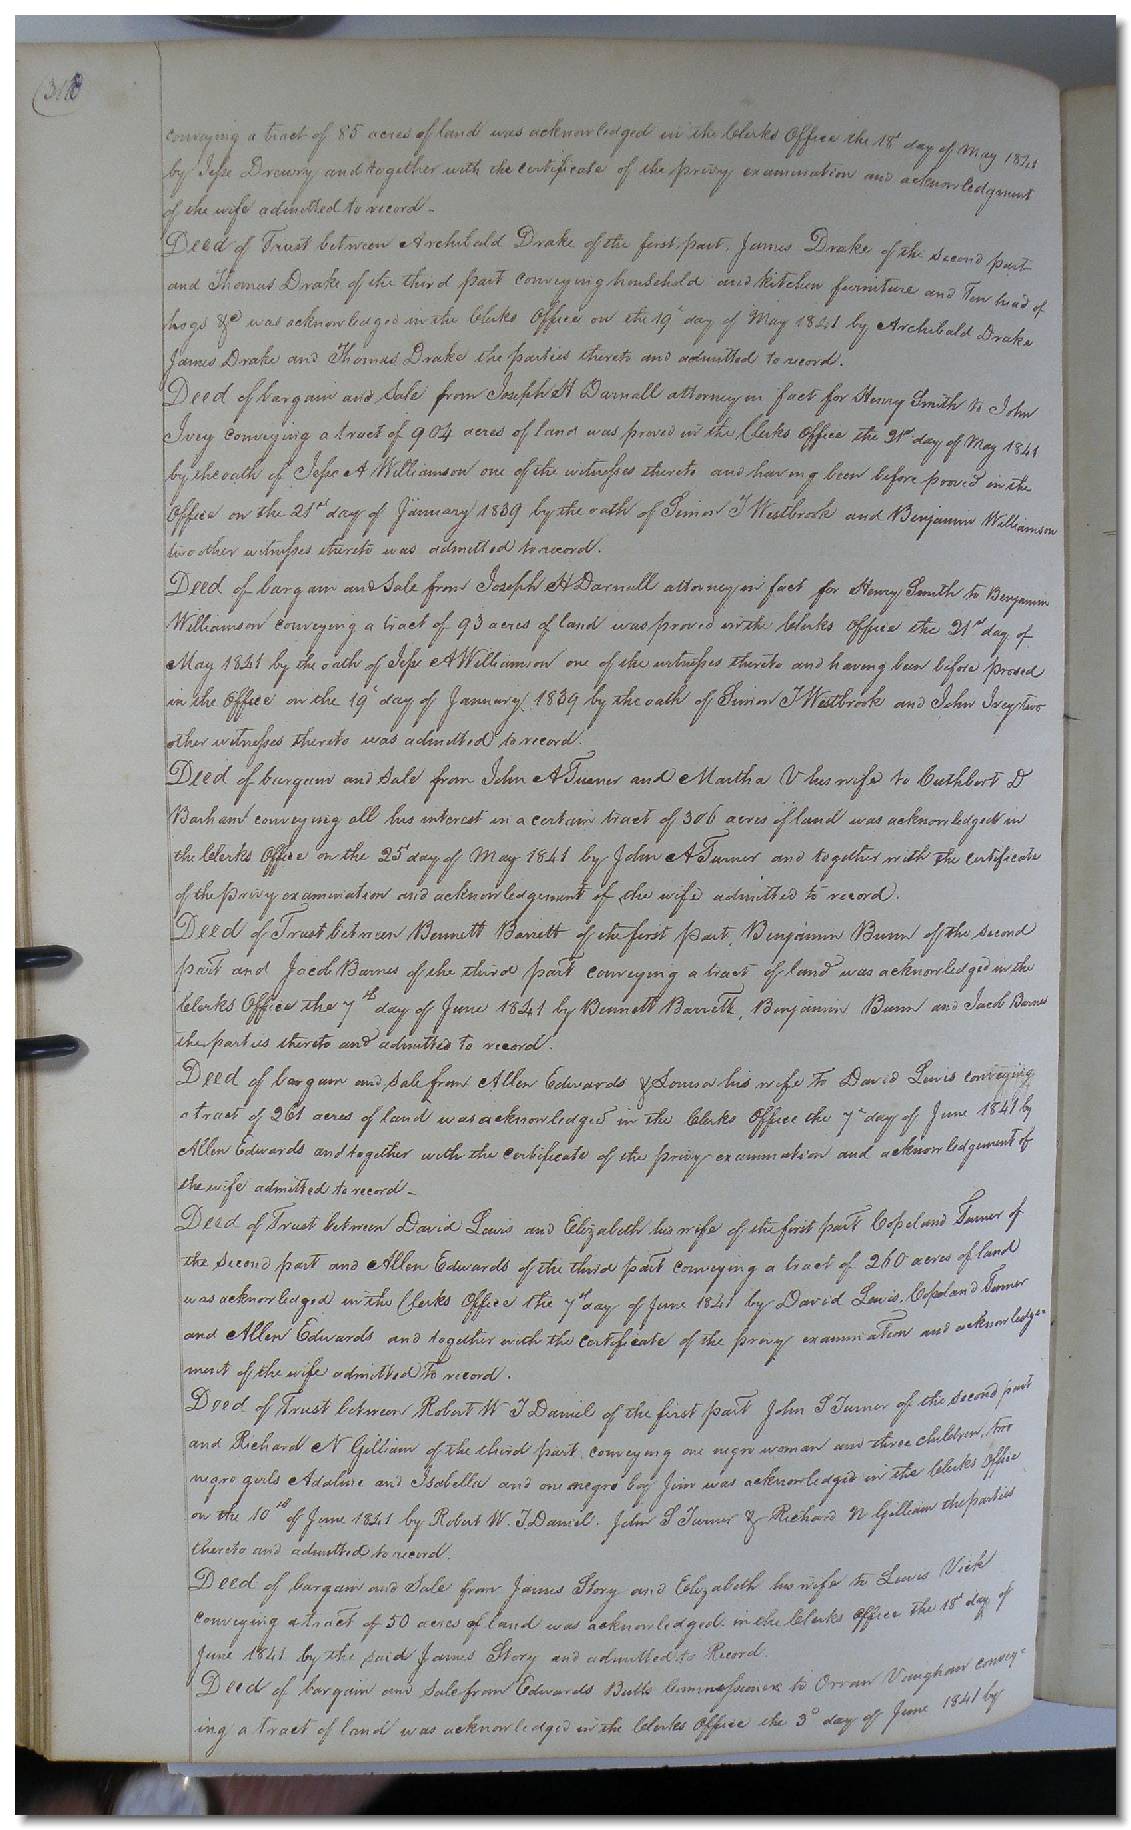 conveying a tract of 85 acres of land was acknowledged in the Clerks Office the 18th day of May 1841
by Jesse Drewry and together with the certificate of the privy examination and acknowledgment
of the wife admitted to record -
Deed of Trust between Archibald Drake of the first part, James Drake of the second part
and Thomas Drake of the third part conveying household and kitchen furniture and Ten head of
hogs &c was acknowledged in the Clerks Office on the 19th day of May 1841 by Archibald Drake
James Drake and Thomas Drake the parties thereto and admitted to record.
Deed of bargain and Sale from Joseph H Darnall attorney in fact for Henry Smith to John
Ivey conveying a tract of 904 acres of land was proved in the Clerks Office the 21st day of May 1841
by the oath of Jesse A Williamson one of the witnesses thereto and having been before proved in the
Office on the 21st day of January 1839 by the oath of Simon T Westbrook and Benjamin Williamson
two other witnesses thereto was admitted to record.
Deed of bargain and Sale from Joseph H Darnall attorney in fact for Henry Smith to Benjamin
Williamson conveying a tract of 93 acres of land was proved in the Clerks Office the 21st day of
May 1841 by the oath of Jesse A Williamson one of the witnesses thereto and having been before proved
in the Office on the 19th day of January 1839 by the oath of Simon T Westbrook and John Ivey two
other witnesses thereto was admitted to record.
Deed of bargain and Sale from John A Turner and Martha V his wife to Cuthbert D
Barham conveying all his interest in a certain tract of 306 acres of land was acknowledged in
the Clerks Office on the 25th day of May 1841 by John A Turner and together with the certificate
of the privy examination and acknowledgement of the wife admitted to record.
Deed of Trust between Bennett Barrett of the first part, Benjamin Bunn of the second
part and Jacob Barnes of the third part conveying a tract of land was acknowledged in the
Clerks Office the 7th day of June 1841 by Bennett Barrett, Benjamin Bunn and Jacob Barnes
the parties thereto and admitted to record.
Deed of bargain and Sale from Allen Edwards & Louisa his wife to David Lewis conveying
a tract of 261 acres of land was acknowledged in the Clerks Office the 7th day of June 1841 by
Allen Edwards and together with the certificate of the privy examination and acknowledgement of
the wife admitted to record -
Deed of Trust between David Lewis and Elizabeth his wife of the first part Copeland Turner of
the second part and Allen Edwards of the third part conveying a tract of 260 acres of land
was acknowledged in the Clerks Office the 7th day of June 1841 by David Lewis, Copeland Turner
and Allen Edwards and together with the certificate of the privy examination and acknowledge-
ment of the wife admitted to record.
Deed of Trust between Robert W. T Daniel of the first part John S Turner of the second part
and Richard N Gilliam of the third part, conveying one negro woman and three children, two
negro girls Adaline and Isabella and one negro boy Jim was acknowledged in the Clerks Office
on the 10th of June 1841 by Robert W. T Daniel. John S Turner & Richard N Gilliam the parties
thereto and admitted to record.
Deed of bargain and Sale from James Story and Elizabeth his wife to Lewis Vick
conveying a tract of 50 acres of land was acknowledged in the Clerks Office the 18th day of
June 1841 by the said James Story and admitted to Record.
Deed of bargain and Sale from Edwards Butts Commissioner to Orran Vaughan convey=
ing a tract of land was acknowledged in the Clerks Office the 3d day of June 1841 by